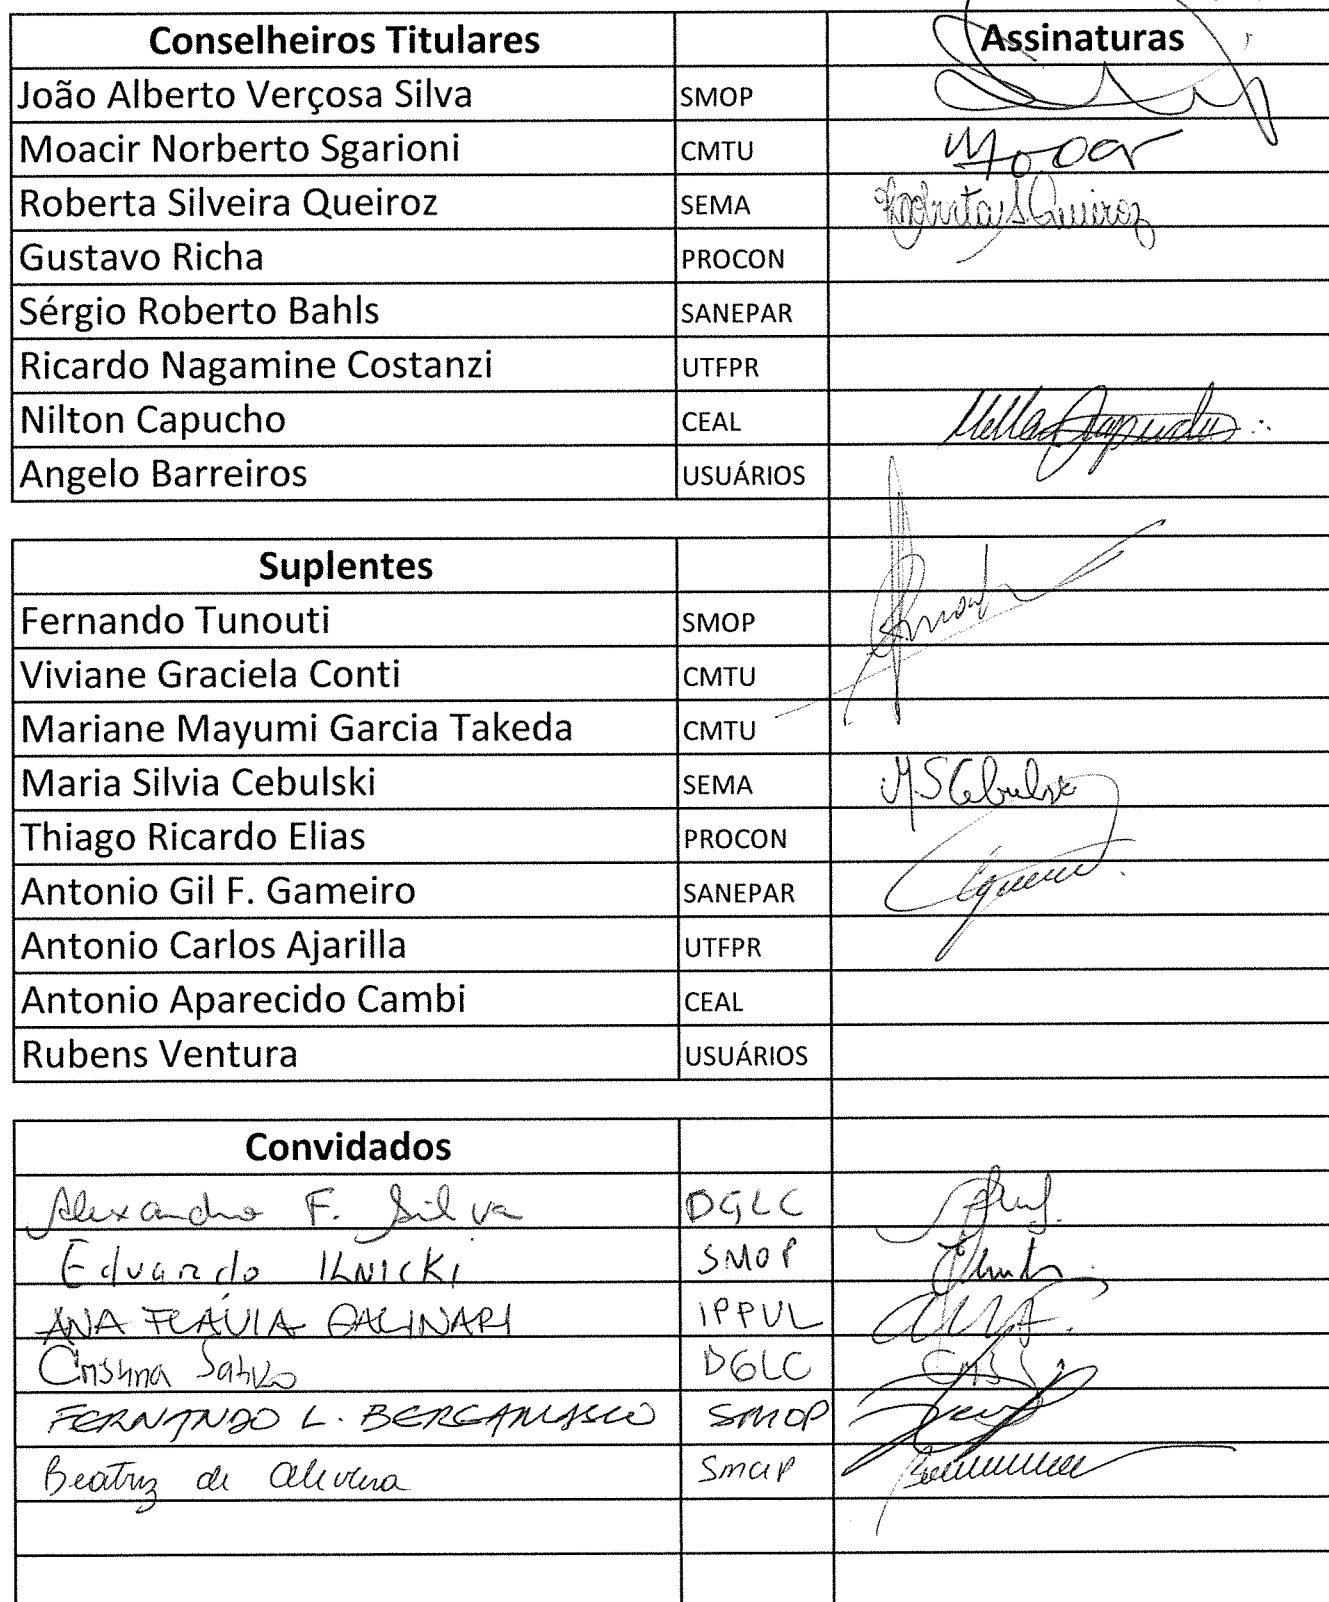 Conselheiros Titulares Assinaturas
João Alberto Verçosa Silva SMOP
Moacir Norberto Sgarioni CMTU Moacir
Roberta Silveira Queiroz SEMA Roberta S Queiroz
Gustavo Richa PROCON
Sérgio Roberto Bahls SANEPAR
Ricardo Nagamine Costanzi UTFPR
Nilton Capucho CEAL
Angelo Barreiros USUÁRIOS
Suplentes
Fernando Tunouti SMOP
Viviane Graciela Conti CMTU
Mariane Mayumi Garcia Takeda CMTU
Maria Silvia Cebulski SEMA MSCebulski
Thiago Ricardo Elias PROCON
Antonio Gil F. Gameiro SANEPAR
Antonio Carlos Ajarilla UTFPR
Antonio Aparecido Cambi CEAL
Rubens Ventura USUÁRIOS
Convidados
Alexandre F. Silva DGLC
Eduardo ILNICKI SMOP
ANA FLÁVIA GALINARI IPPUL
Cristina DGLC
FERNANDO L. BERGAMASCO SMOP
Beatriz de Oliveira SMOP